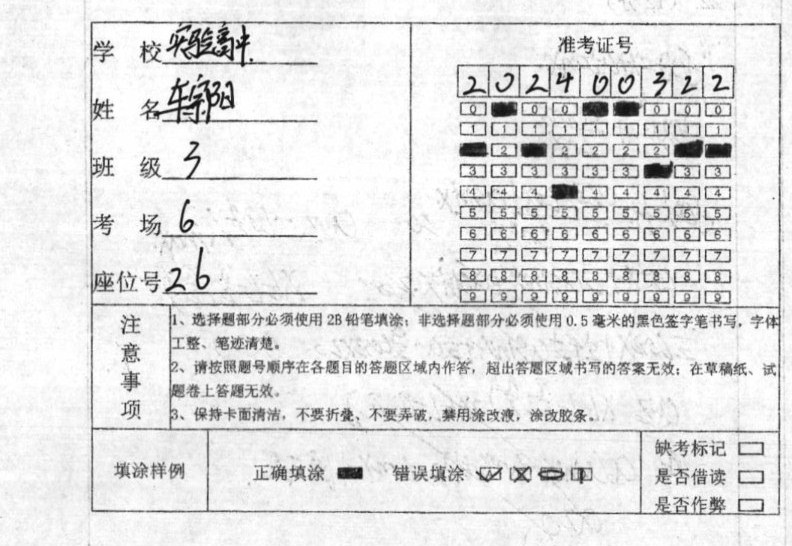 学 校 实验高中.
准考证号
2 0 2 4 0 0 3 2 2
姓 名 牟宗阳
班 级 3
考 场 6
座位号 26
0 0 0 0 0
1 1 1 1 1 1 1 1 1
2 2 2 2 2
3 3 3 3 3 3 3 3
4 4 4 4 4 4 4 4
5 5 5 5 5 5 5 5 5
6 6 6 6 6 6 6 6 6
7 7 7 7 7 7 7 7 7
8 8 8 8 8 8 8 8 8
9 9 9 9 9 9 9 9 9
注意事项
1、选择题部分必须使用 2B 铅笔填涂；非选择题部分必须使用 0.5 毫米的黑色签字笔书写，字体
工整、笔迹清楚。
2、请按照题号顺序在各题目的答题区域内作答，超出答题区域书写的答案无效；在草稿纸、试
题卷上答题无效。
3、保持卡面清洁，不要折叠、不要弄破，禁用涂改液，涂改胶条。
填涂样例
正确填涂 错误填涂
缺考标记
是否借读
是否作弊